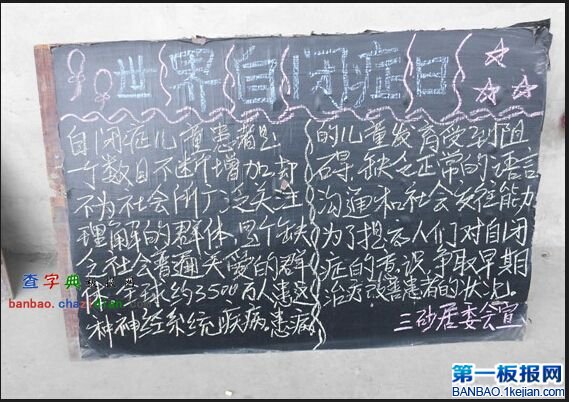 世界自闭症日
自闭症儿童患者是
一个数目不断增加却
不为社会所广泛关注
理解的群体,是个缺
乏社会普遍关爱的群
体 全球约3500万人患这
种神经系统疾病患病
的儿童发育受到阻
碍,缺乏正常的语言
沟通和社会交往能力
为了提示人们对自闭
症的意识争取早期
治疗改善患者的状况。
三砂居委会宣
查字典
banbao.cha
第一板报网
BANBAO.1kejian.com